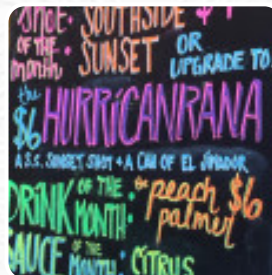 SHOT: SOUTHSIDE $4
OF THE MONTH: SUNSET OR UPGRADE TO
the $6 HURRICANRANA
A S.S. SUNSET SHOT + A CAN OF EL JIMADOR
DRINK OF THE MONTH: the peach palmer $6
SAUCE OF THE MONTH: CITRUS